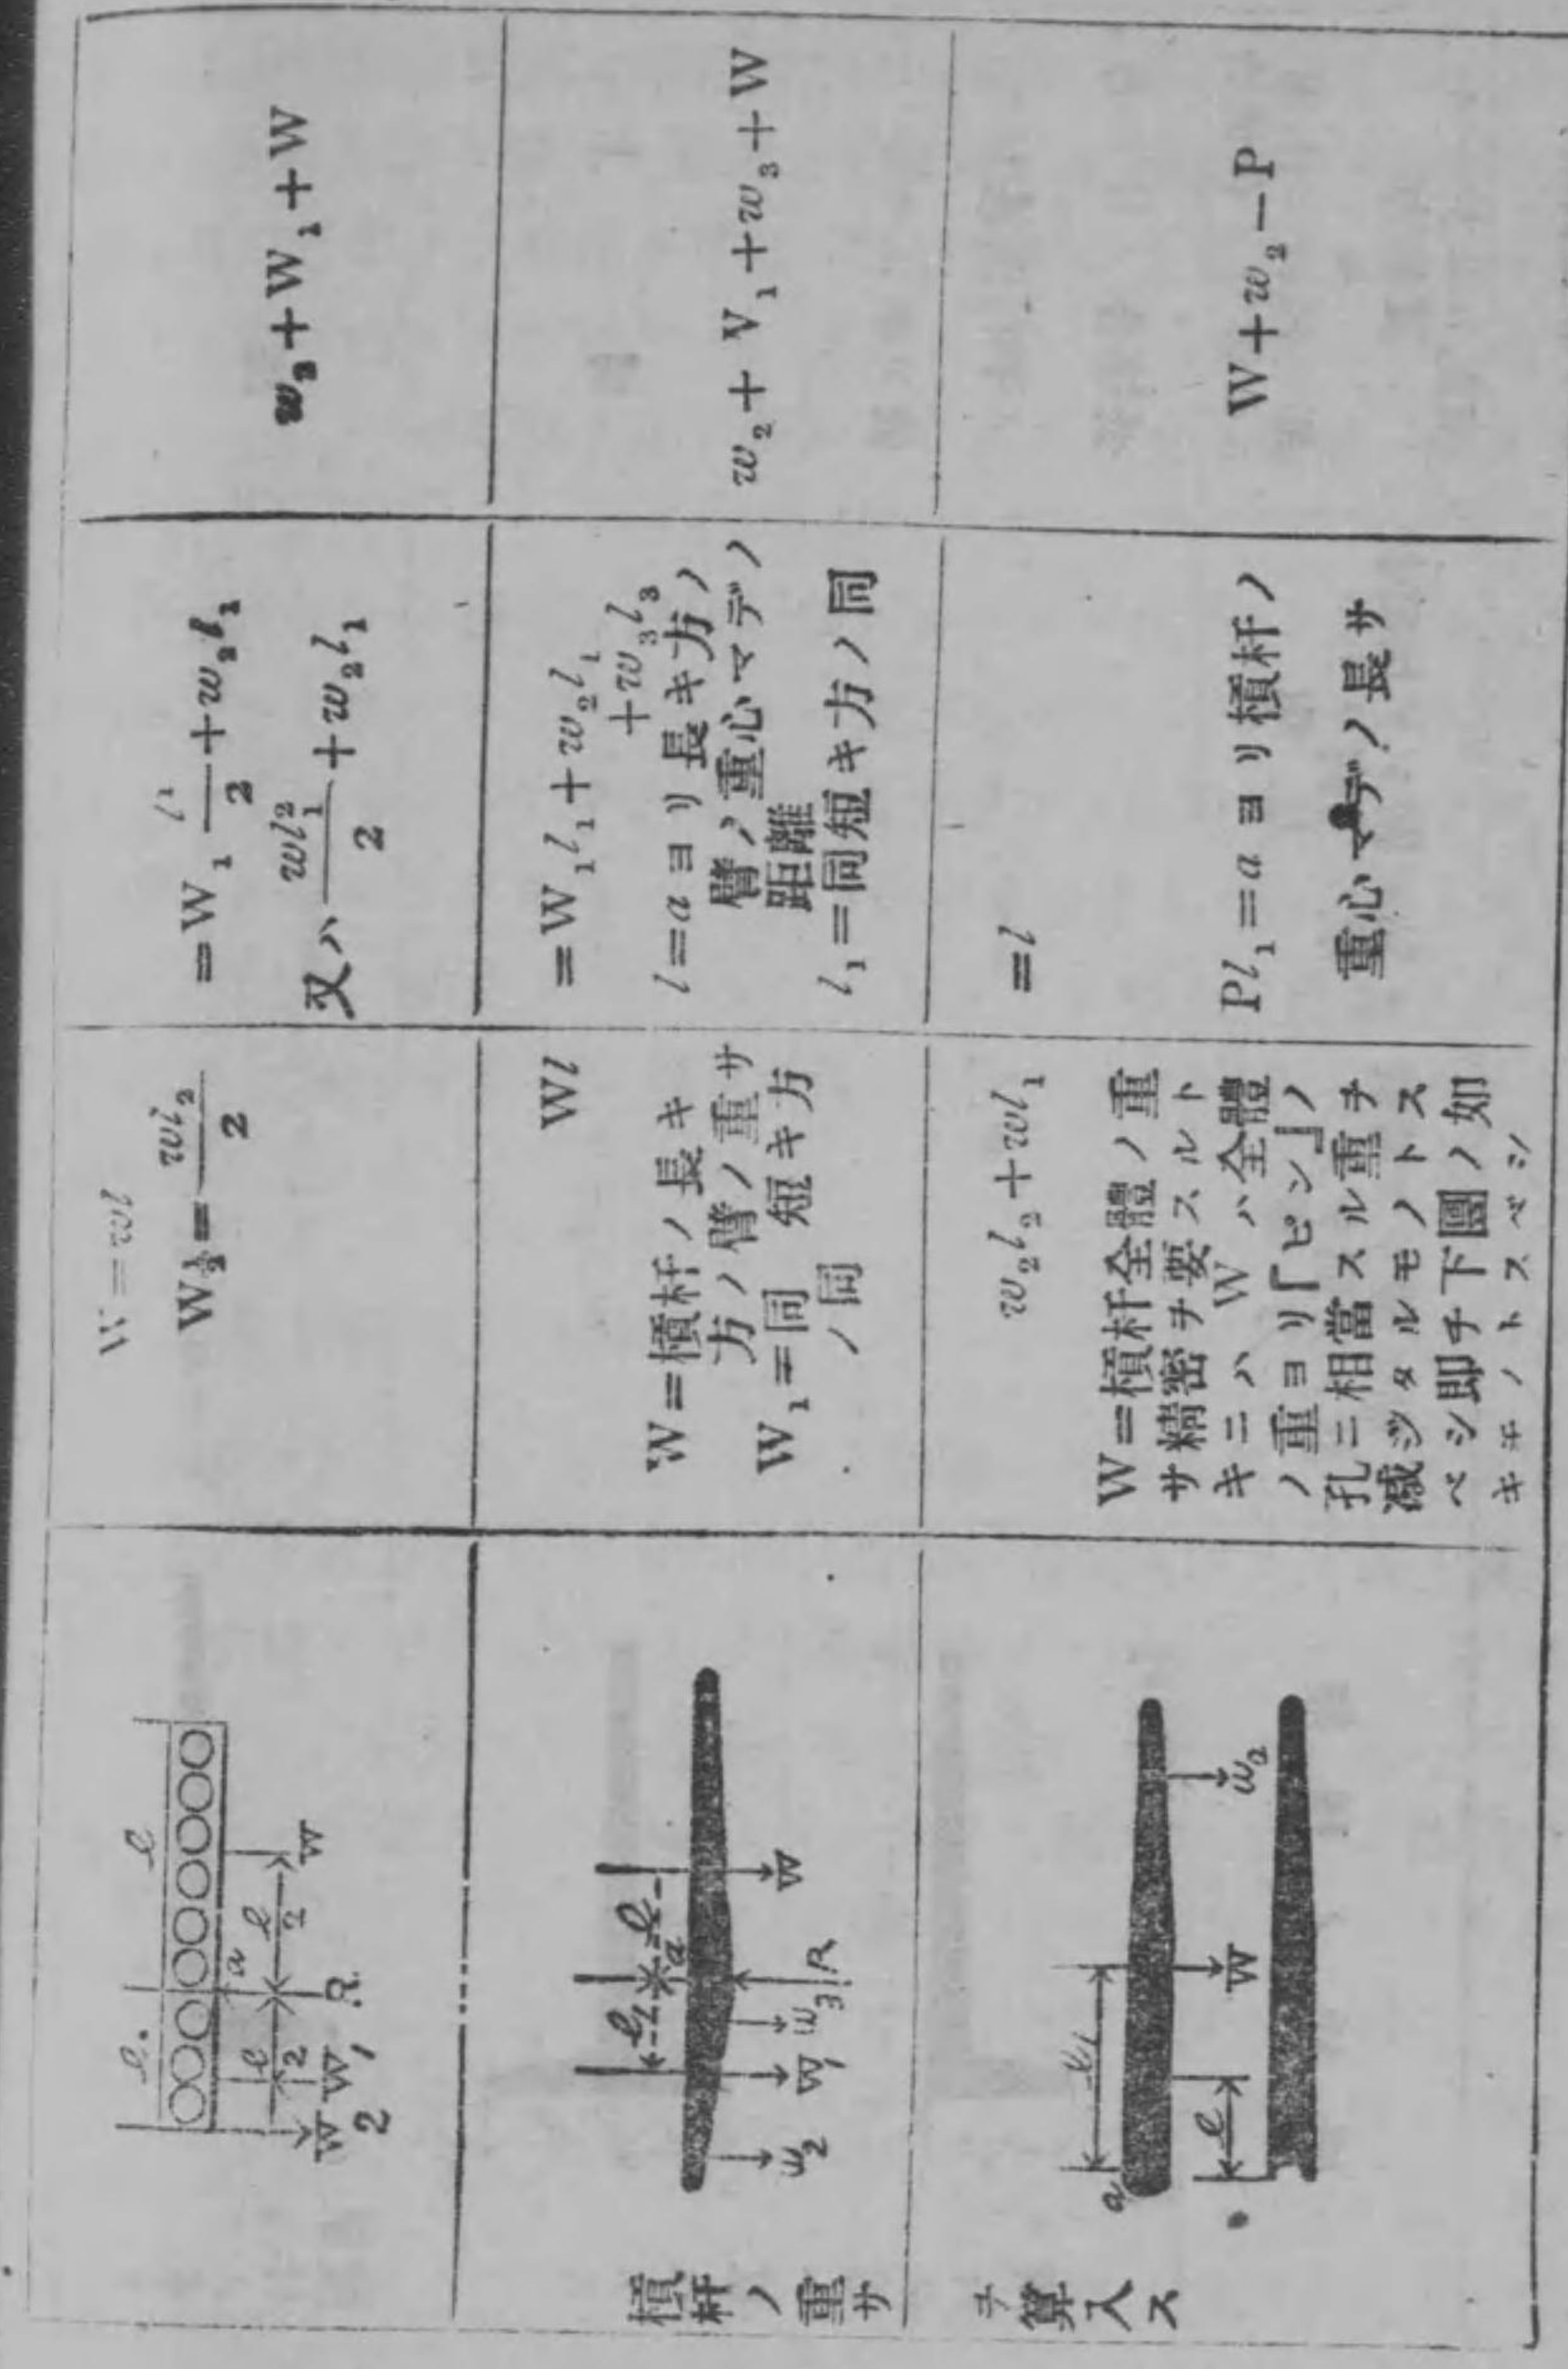 W=wl
W½=wl₂/2
=W₁ l₁/2+w₂l₁
又ハ wl₁²/2+w₂l₁
w₂+W₁+W
l
l₁
a
l/2
l/2
W
R
W₁
W₂
槓杆ノ重サ
l₁
l
a
W
R
w₃
W₁
w₂
Wl
W=槓杆ノ長キ
方ノ臂ノ重サ
W₁=同 短キ方
ノ同
=W₁l₁+w₂l₁
+w₃l₃
l=aヨリ長キ方ノ
臂ノ重心マデノ
距離
l₁=同短キ方ノ同
w₂+V₁+w₃+W
ヲ算入ス
a
l₁
W
w₂
l
w₂l₂+wl₁
W=槓杆全體ノ重
サ精密ヲ要スルト
キニハ W ハ全體
ノ重ヨリ『ピン』ノ
孔ニ相當スル重ヲ
減ジタルモノトス
ベシ即チ下圖ノ如
キモノトスベシ
=l
Pl₁=aヨリ槓杆ノ
重心マデノ長サ
W+w₂−P